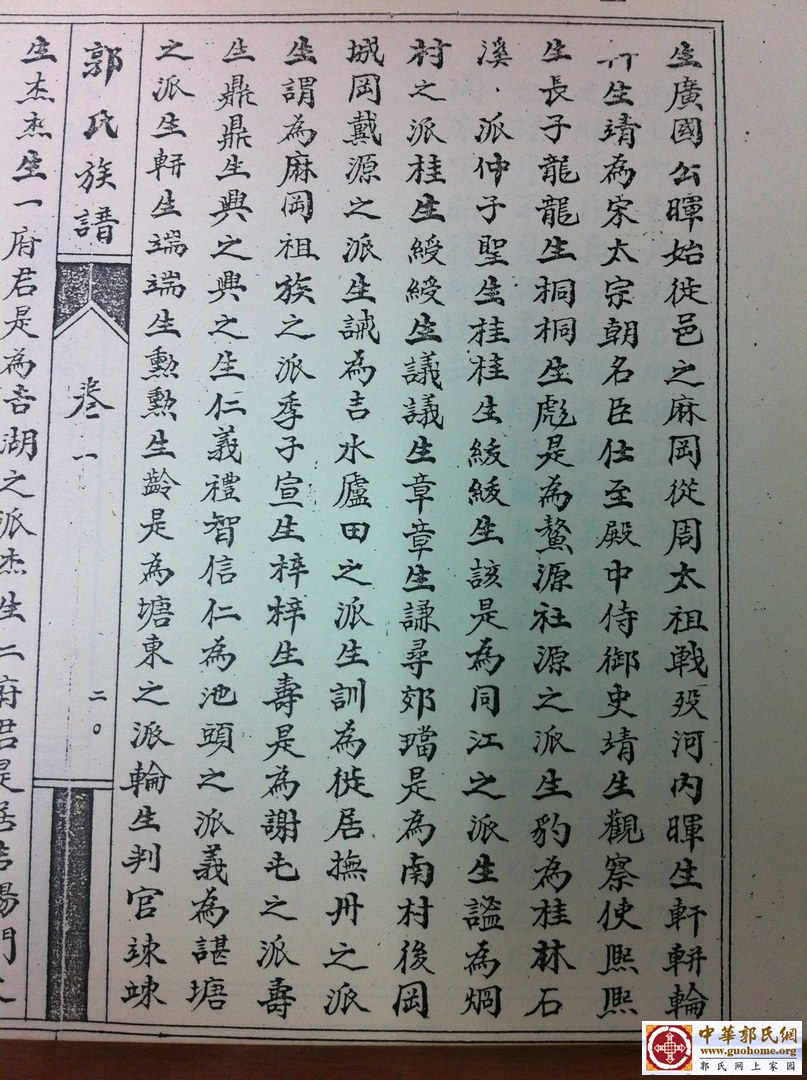 生廣國公暉始徙邑之麻岡從周太祖戰歿河內暉生軒輧輪
生靖為宋太宗朝名臣仕至殿中侍御史靖生觀察使熙熙
生長子龍龍生桐桐生彪是為鰲源社源之派生豹為桂林石
溪派仲子聖生桂桂生綾綾生該是為同江之派生謐為烱
村之派桂生綬綬生議議生章章生謙尋郊璫是為南村後岡
城岡戴源之派生誠為吉水廬田之派生訓為徙居撫州之派
生謂為麻岡祖族之派季子宣生梓梓生壽是為謝屯之派壽
生鼎鼎生興之興之生仁義禮智信仁為池頭之派義為諶塘
之派生軿生端端生勲勲生齡是為塘東之派輪生判官竦竦
郭氏族譜
卷一
二〇
生杰杰生一府君是為吉湖之派杰生二府君是居吉陽門
中華郭氏網
www.guohome.org
郭氏網上家園